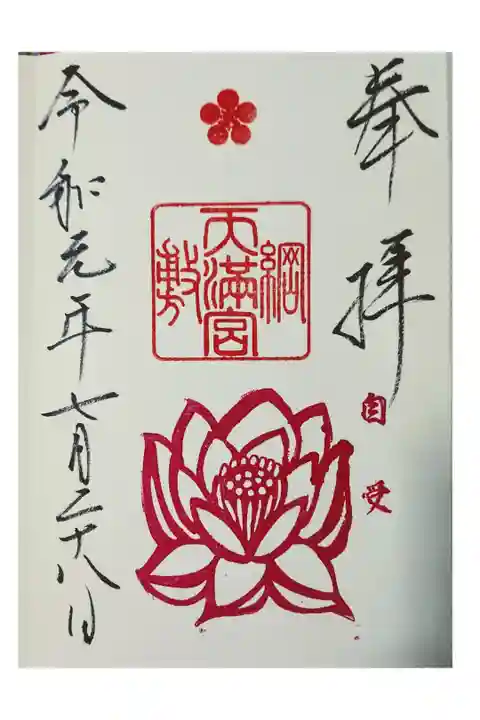 奉拝
自受
綱敷天満宮
令和元年七月二十八日